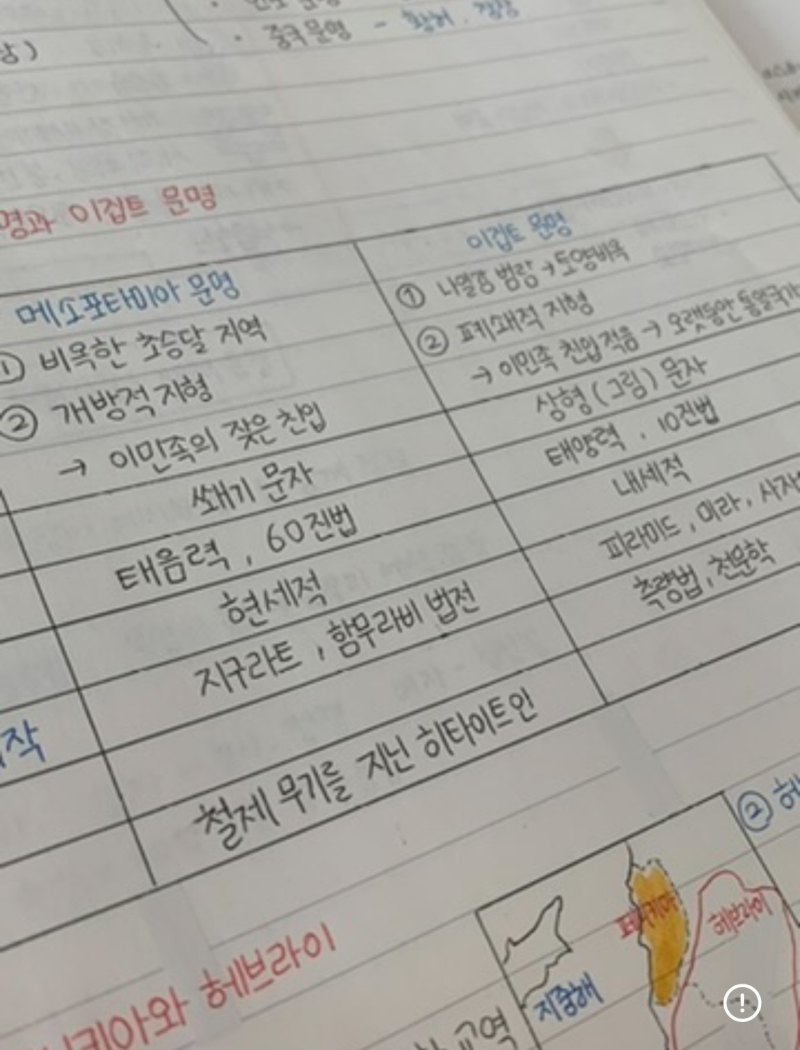 · 중국문명 - 황허, 장강
명과 이집트 문명
메소포타미아 문명
① 비옥한 초승달 지역
② 개방적 지형
→ 이민족의 잦은 침입
쐐기 문자
태음력, 60진법
현세적
지구라트, 함무라비 법전
철제 무기를 지닌 히타이트인
이집트 문명
① 나일강 범람 → 토양비옥
② 폐쇄적 지형
→ 이민족 침입 적음 → 오랫동안 통일국가
상형(그림) 문자
태양력, 10진법
내세적
피라미드, 미라, 사자
측량법, 천문학
작
니키아와 헤브라이
교역
② 헤
페니키아
헤브라이
지중해